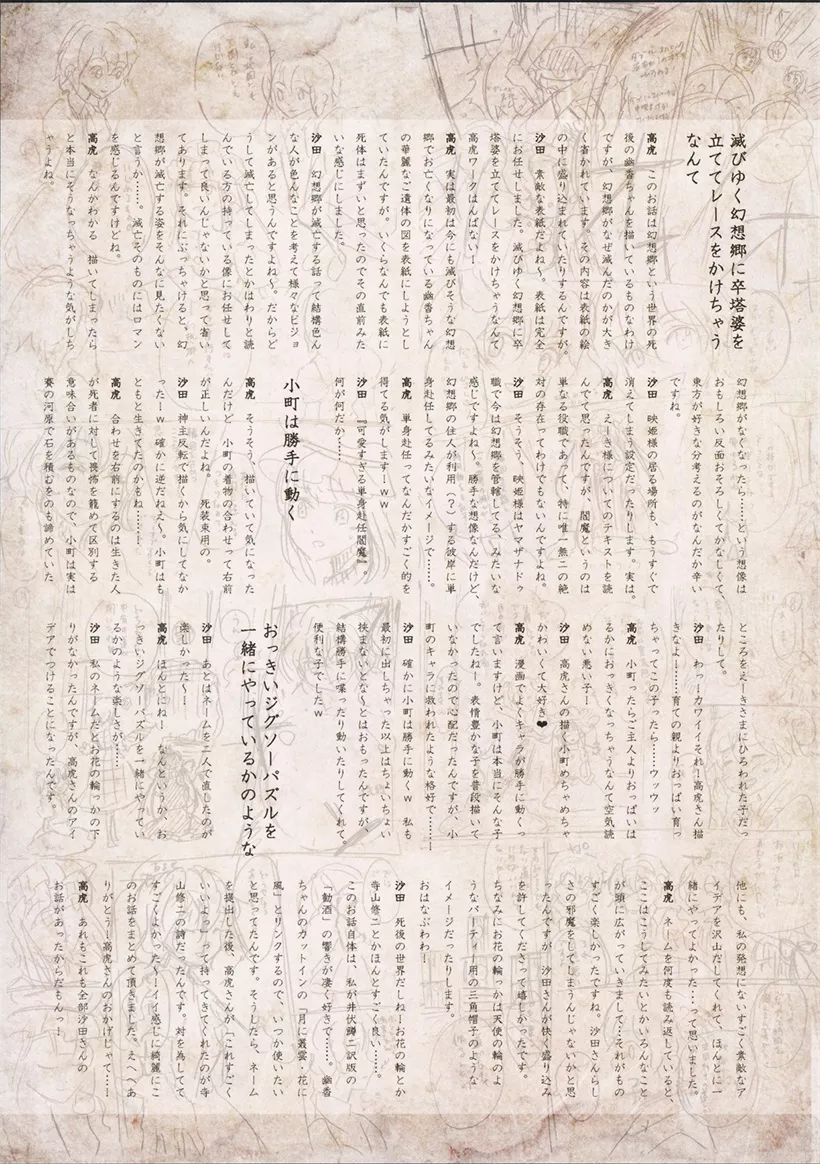 滅びゆく幻想郷に卒塔婆を
立ててレースをかけちゃう
なんて
高虎　このお話は幻想郷という世界の死
後の幽香ちゃんを描いているものなわけ
ですが、幻想郷がなぜ滅んだのかが大き
く省かれています。その内容は表紙の絵
の中に盛り込まれていたりするんですが。
沙田　素敵な表紙だよね～。表紙は完全
にお任せしました。滅びゆく幻想郷に卒
塔婆を立ててレースをかけちゃうなんて
高虎ワークはんぱない！
高虎　実は最初はいかにも滅びそうな幻想
郷でお亡くなりになっている幽香ちゃん
の華麗なご遺体の図を表紙にしようとし
ていたんですが。いくらなんでも表紙に
死体はまずいと思ったのでその直前みた
いな感じにしました。
沙田　幻想郷が滅亡する話って結構色ん
な人が色んなことを考えて様々なビジョ
ンがあると思うんですよね～。だからど
うして滅亡してしまったとかはわりと読
んでいる方の持っている像にお任せして
しまって良いんじゃないかと思って省い
てあります。それにぶっちゃけると、幻
想郷が滅亡する姿をそんなに見たくない
と言うか……。滅亡そのものにはロマン
を感じるんですけどね。
高虎　なんかわかる　描いてしまったら
と本当にそうなっちゃうような気がしち
ゃうよね。
幻想郷がなくなったら……という想像は
おもしろい反面おそろしくてかなしくて、
東方が好きな分考えるのがなんだか辛い
ですね。
沙田　映姫様の居る場所も、もうすぐで
消えてしまう設定だったりします。実は。
高虎　えーき様についてのテキストを読
んでて思ったんですが、閻魔というのは
単なる役職であって、特に唯一無二の絶
対の存在ってわけでもないんですよね。
沙田　そうそう、映姫様はヤマザナドゥ
職で今は幻想郷を管轄してる、みたいな
感じですよね～。勝手な想像なんだけど、
幻想郷の住人が利用（？）する彼岸に単
身赴任してるみたいなイメージで……。
高虎　単身赴任ってなんだかすごく的を
得てる気がします！ｗｗ
沙田　『可愛すぎる単身赴任閻魔』。
何が何だか……。
小町は勝手に動く
高虎　そうそう、描いていて気になった
んだけど　小町の着物の合わせって右前
が正しいんだよね。　死装束用の。
沙田　神主反転で描くから気にしてなか
ったーｗ　確かに逆だねえ～。小町はも
ともと生きてたのかもね……！
高虎　合わせを右前にするのは生きた人
が死者に対して畏怖を籠めて区別する
意味合いがあるものなので、小町は実は
賽の河原で石を積むをのも諦めていた
ところをえーきさまにひろわれた子だっ
たりして。
沙田　わっーカワイイそれ！高虎さん描
きなよ！……育ての親よりおっぱい育っ
ちゃってこの子ったら……ウッウッ
高虎　小町ったらご主人よりおっぱいは
るかにおっきくなっちゃうなんて空気読
めない悪い子！
沙田　高虎さんの描く小町めちゃめちゃ
かわいくて大好き❤
高虎　漫画でよくキャラが勝手に動くっ
て言いますけど、小町は本当にそんな子
でしたねー。表情豊かな子を普段描いて
いなかったので心配だったんですが、小
町のキャラに救われたような格好で……！
沙田　確かに小町は勝手に動くｗ　私も
最初に出しちゃった以上はちょいちょい
挟まないとな～とはおもったんですが、
結構勝手に喋ったり動いたりしてくれて。
便利な子でしたｗ
おっきいジグソーパズルを
一緒にやっているかのような
沙田　あとはネームを二人で直したのが
楽しかった～！
高虎　ほんとにね！　なんというか、お
っきいジグソーパズルを一緒にやってい
るかのような楽しさが……
沙田　私のネームだとお花の輪っかの下
りがなかったんですが、高虎さんのアイ
デアでつけることになったんです。
他にも、私の発想にないすごく素敵なア
イデアを沢山だしてくれて、ほんとに一
緒にやってよかった…って思いました。
高虎　ネームを何度も読み返していると、
ここはこうしてみたいとかいろんなこと
が頭に広がっていきまして…それがもの
すごく楽しかったですね。沙田さんらし
さの邪魔をしてしまうんじゃないかと思
ったんですが　沙田さんが快く盛り込み
を許してくださって嬉しかったです。
ちなみにお花の輪っかは天使の輪のよ
うなパーティー用の三角帽子のような
イメージだったりします。
おはなぶわわ！
沙田　死後の世界だしね！お花の輪とか
寺山修二とかほんとすごく良い……。
このお話自体は、私が井伏鱒二訳版の
「勧酒」の響きが凄く好きで……。幽香
ちゃんのカットインの「月に叢雲・花に
風」とリンクするので、いつか使いたい
と思ってたんです。そうしたら、ネーム
を提出した後、高虎さんが「これすごく
いいよ！」って持ってきてくれたのが寺
山修二の詩だったんです。対を為してて
すごくよかった～！イイ感じに綺麗にこ
のお話をまとめて頂きました。えへへあ
りがとう！高虎さんのおかげじゃて…！
高虎　あれもこれも全部沙田さんの
お話があったからだもんっ！